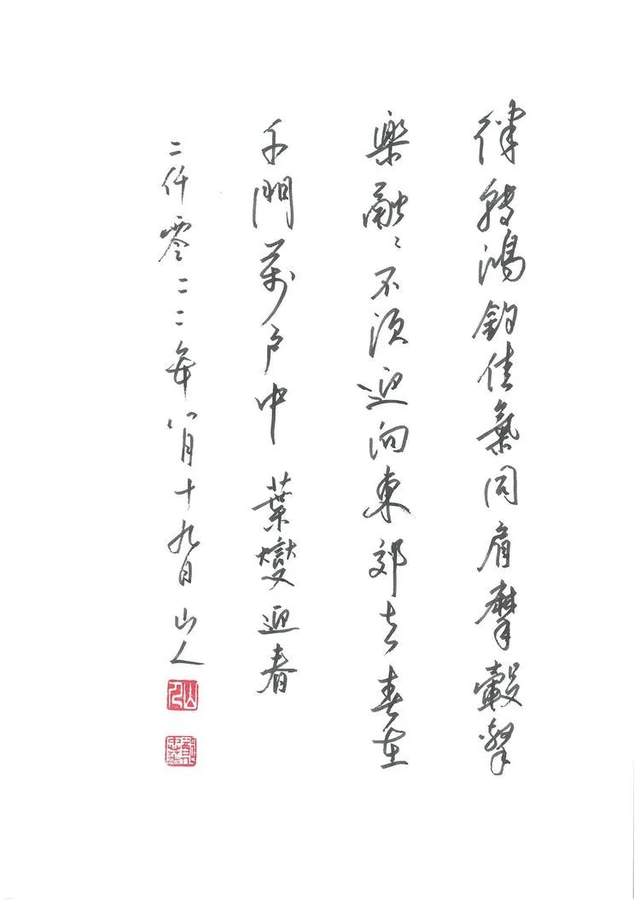 律轉鴻鈞佳氣同肩摩轂擊
樂融〻不須迎向東郊去春在
千門萬户中 葉燮迎春
二仟零二二年八月十九日 山人